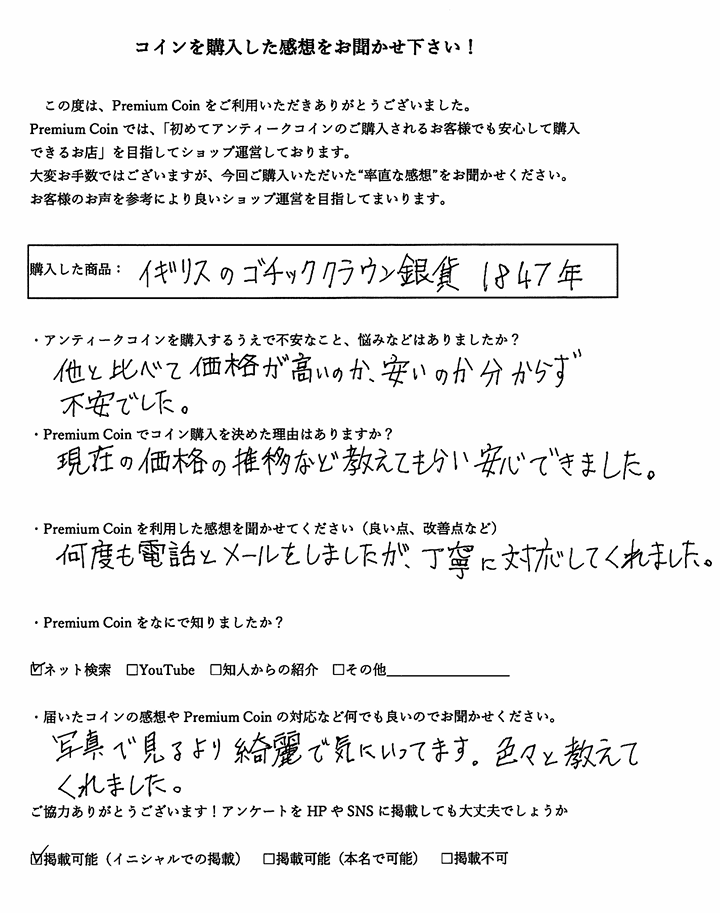 コインを購入した感想をお聞かせ下さい！
この度は、Premium Coin をご利用いただきありがとうございました。
Premium Coin では、「初めてアンティークコインのご購入されるお客様でも安心して購入
できるお店」を目指してショップ運営しております。
大変お手数ではございますが、今回ご購入いただいた“率直な感想”をお聞かせください。
お客様のお声を参考により良いショップ運営を目指してまいります。
購入した商品： イギリスのゴチッククラウン銀貨 1847年
・アンティークコインを購入するうえで不安なこと、悩みなどはありましたか？
他と比べて価格が高いのか、安いのか分からず
不安でした。
・Premium Coin でコイン購入を決めた理由はありますか？
現在の価格の推移など教えてもらい安心できました。
・Premium Coin を利用した感想を聞かせてください（良い点、改善点など）
何度も電話とメールをしましたが、丁寧に対応してくれました。
・Premium Coin をなにで知りましたか？
☑ネット検索 □YouTube □知人からの紹介 □その他__________
・届いたコインの感想や Premium Coin の対応など何でも良いのでお聞かせください。
写真で見るより綺麗で気にいってます。色々と教えて
くれました。
ご協力ありがとうございます！アンケートを HP や SNS に掲載しても大丈夫でしょうか
☑掲載可能（イニシャルでの掲載） □掲載可能（本名で可能） □掲載不可